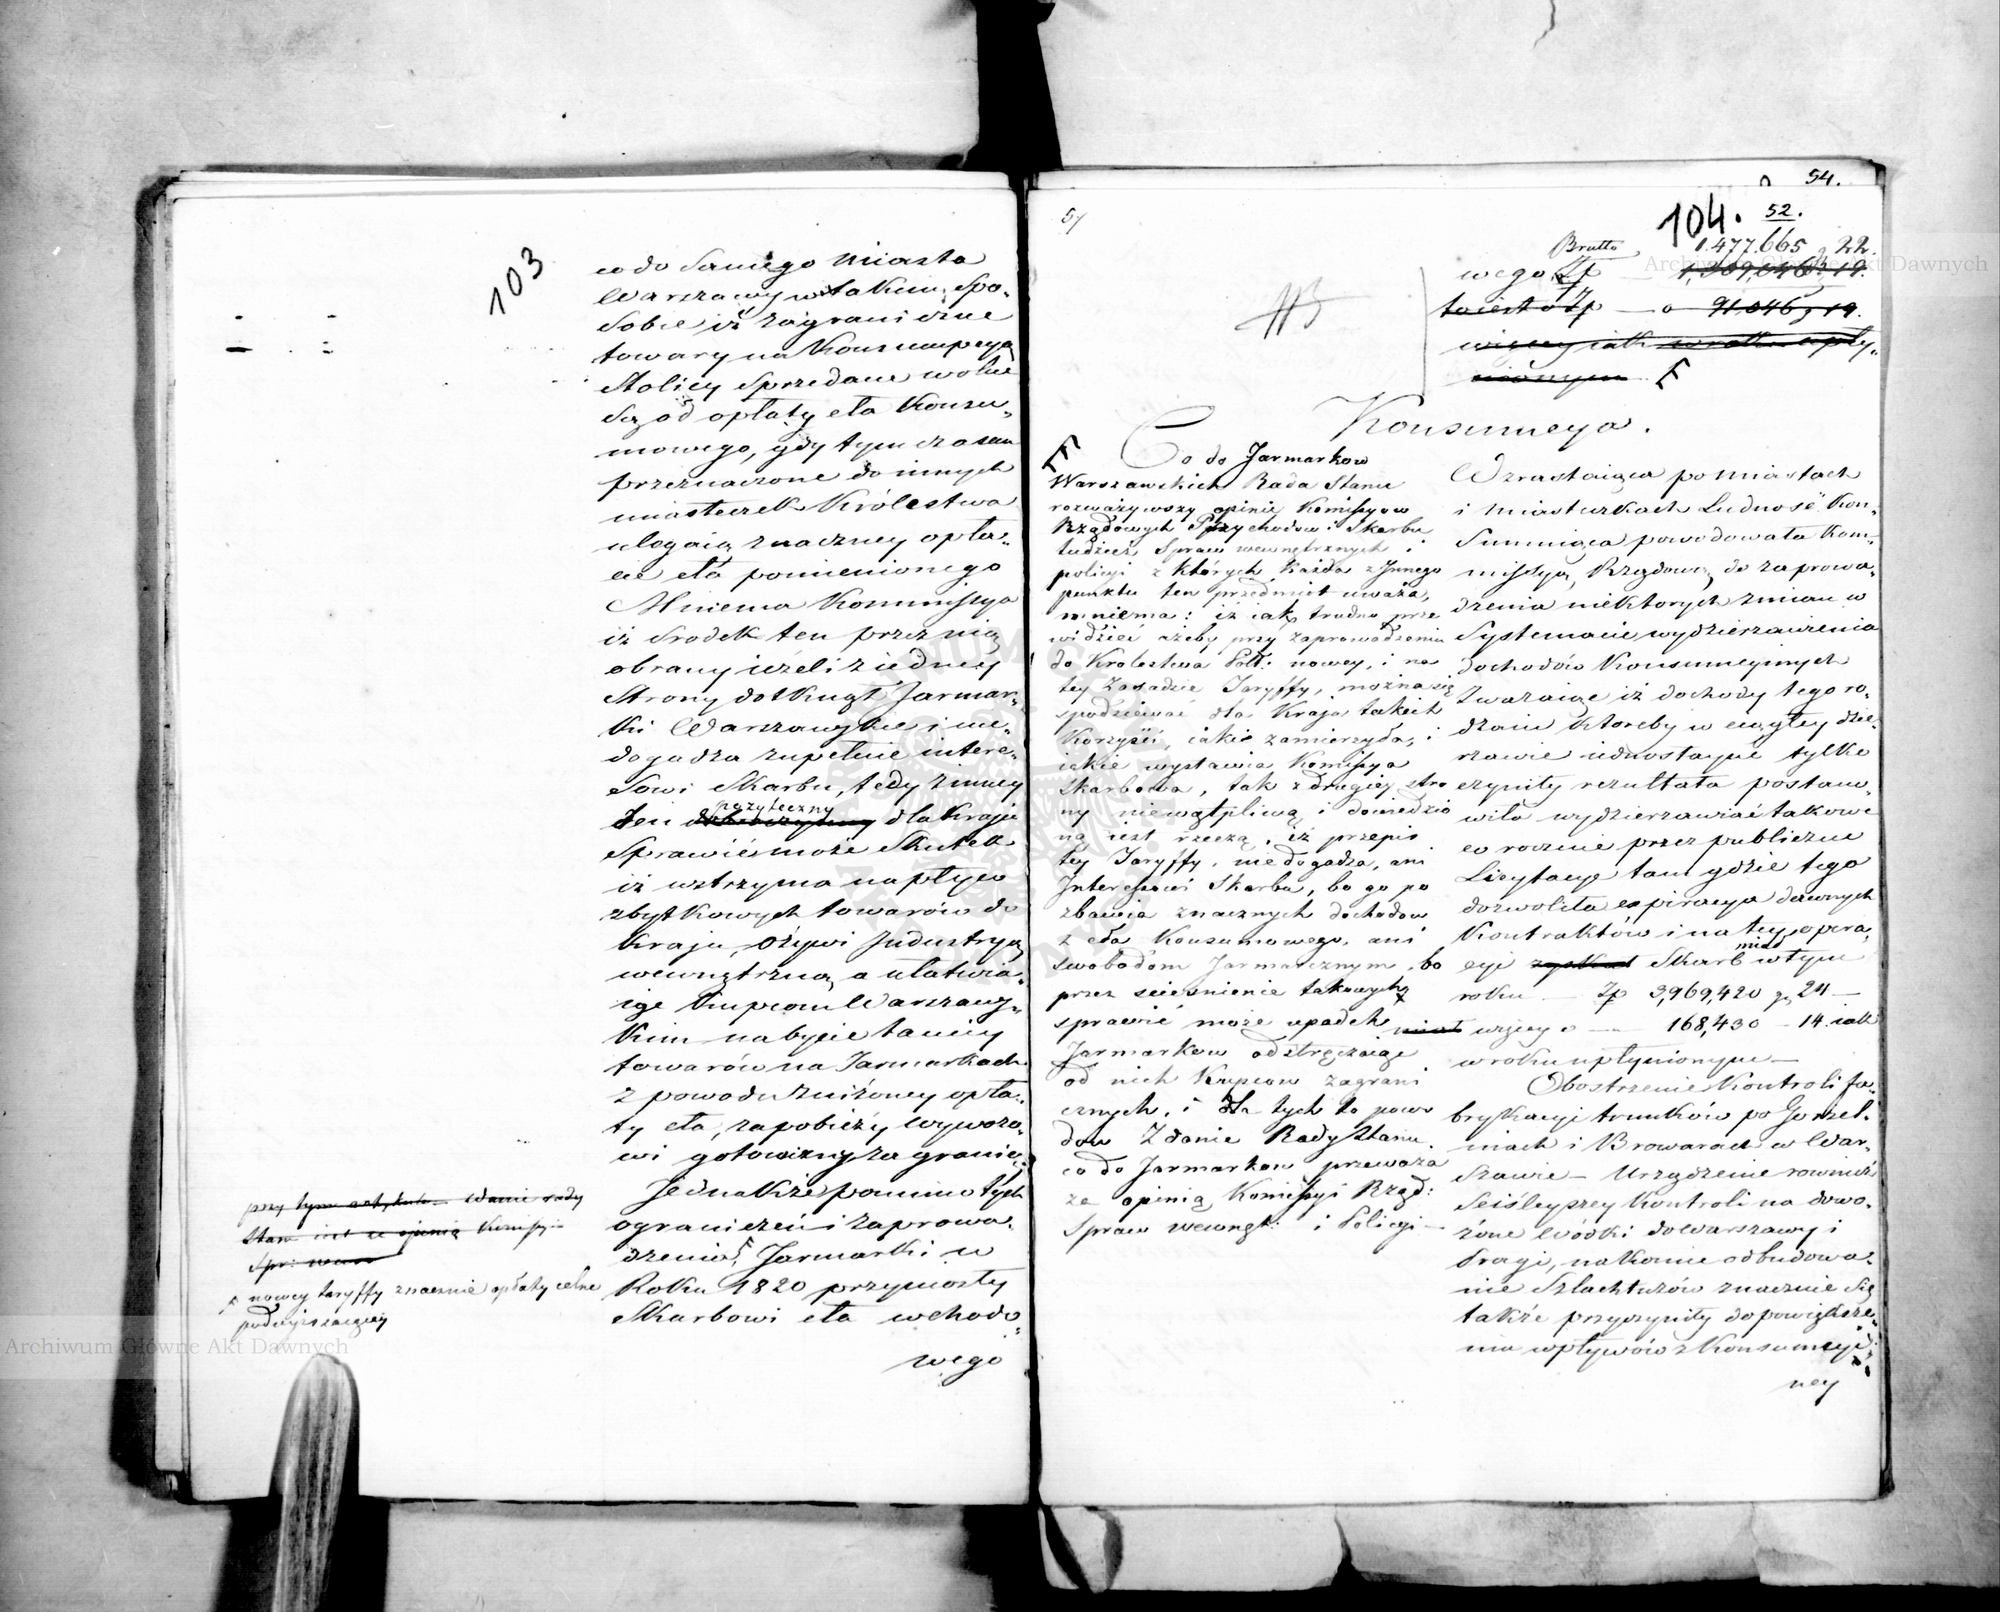 103
co do samego Miasta
Warszawy w takim spo-
sobie iż zagraniczne
towary na Konsumpcyą
Stolicy sprzedane wolne
są od opłaty cła Konsu-
mowego, gdy tym czasem
przeznaczone do innych
miasteczek Królestwa
ulegaią znaczney opła-
cie cła pomienionego
Mniema Kommissya
iż srodek ten przez nią
obrany ieżeli z iedney
strony dotknął Jarmar-
ki Warszawskie i nie-
dogadza zupełnie intere-
sowi Skarbu, tedy z inney
ten pożyteczny dla Kraju
sprawić może skutek
iż wstrzyma napływ
zbytkowych towarów do
Kraju, ożywi Industryą
wewnętrzną a ułatwia-
iąc Kupcom Warszaws-
kim nabycie taniey
towarów na Jarmarkach
z powodu zniżoney opła-
ty cła, zapobieży wywozo-
wi gotowizny za granicę.
Jednakże pomimo tych
ograniczeń i zaprowa-
dzenia F, Jarmarki w
Roku 1820 przyniosły
Skarbowi cła wchodo-
wego
przy tym artykule zdanie rady
Stanu iest za opinią Komissyi
Spr: wewn
F nowey taryffy znacznie opłaty celne
podwyższaiącey
54.
51
104.
52.
Brutto 1.477.665 g 22.
wego Zp
to iest o Zp — o 91.046 g 19.
więcey iak w roku upły-
nionym F
Konsumcya.
FF Co do Jarmarkow
Warszawskich Rada Stanu
rozważywszy opinie Komissyow
Rządowych Przychodow i Skarbu
tudzież Spraw wewnętrznych i
policyi z których każda z Innego
punktu ten przedmiot uważa,
mniema: iż iak trudno prze
widzieć ażeby przy zaprowadzeniu
do Krolestwa Pols: nowey, i na
tey Zasadzie Taryffy, można się
spodziewać dla Kraju takich
Korzyści, iakie zamierzyła, i
iakie wystawia Komissya
Skarbowa, tak z drugiey stro
ny niewątpliwą i dowiedzio
ną iest rzeczą, iż przepis
tey Taryffy, nie dogadza, ani
Interessowi Skarbu, bo go po
zbawia znacznych dochodow
z cła Konsumowego, ani
swobodom Jarmarcznym, bo
przez scieśnienie takowych
sprawić może upadek
Jarmarkow odstręczaiąc
od nich Kupcow zagrani
cznych, i dla tych to powo
dow Zdanie Rady Stanu.
co do Jarmarkow przeważa
za opinią Komissyi Rząd:
Spraw wewnęt: i Policyi —
Wzrastaiąca po miastach
i miasteczkach Ludność Kon-
sumuiąca powodowała Kom-
missyą Rządową do zaprowa-
dzenia niektorych zmian w
Systemacie wydzierzawienia
dochodów Konsumcyinych
Zważaiąc iż dochody tego ro-
dzaiu ktoreby w ciągłey dzie-
rzawie iednostayne tylko
czyniły rezultata postano-
wiła wydzierzawiać takowe
co rocznie przez publiczne
Licytacye tam gdzie tego
dozwoliła expiracya dawnych
Kontraktów i na tey opera-
cyi zyskał miał Skarb w tym
roku — Zp 3,969,420 g 24 —
miał więcey o — 168,430 — 14. iak
w roku upłynionym —
Obostrzenie Kontroli fa-
brykacyi trunków po Gorzel-
niach i Browarach w War-
szawie — Urządzenie rownież
ściśleyszey Kontroli na dowo-
żone Wódki do Warszawy i
Pragi, nakoniec odbudowa-
nie Szlachtuzów znacznie się
także przyczyniły do powiększe-
nia wpływów z Konsumcyi-
ney
Archiwum Główne Akt Dawnych
Archiwum Główne Akt Dawnych